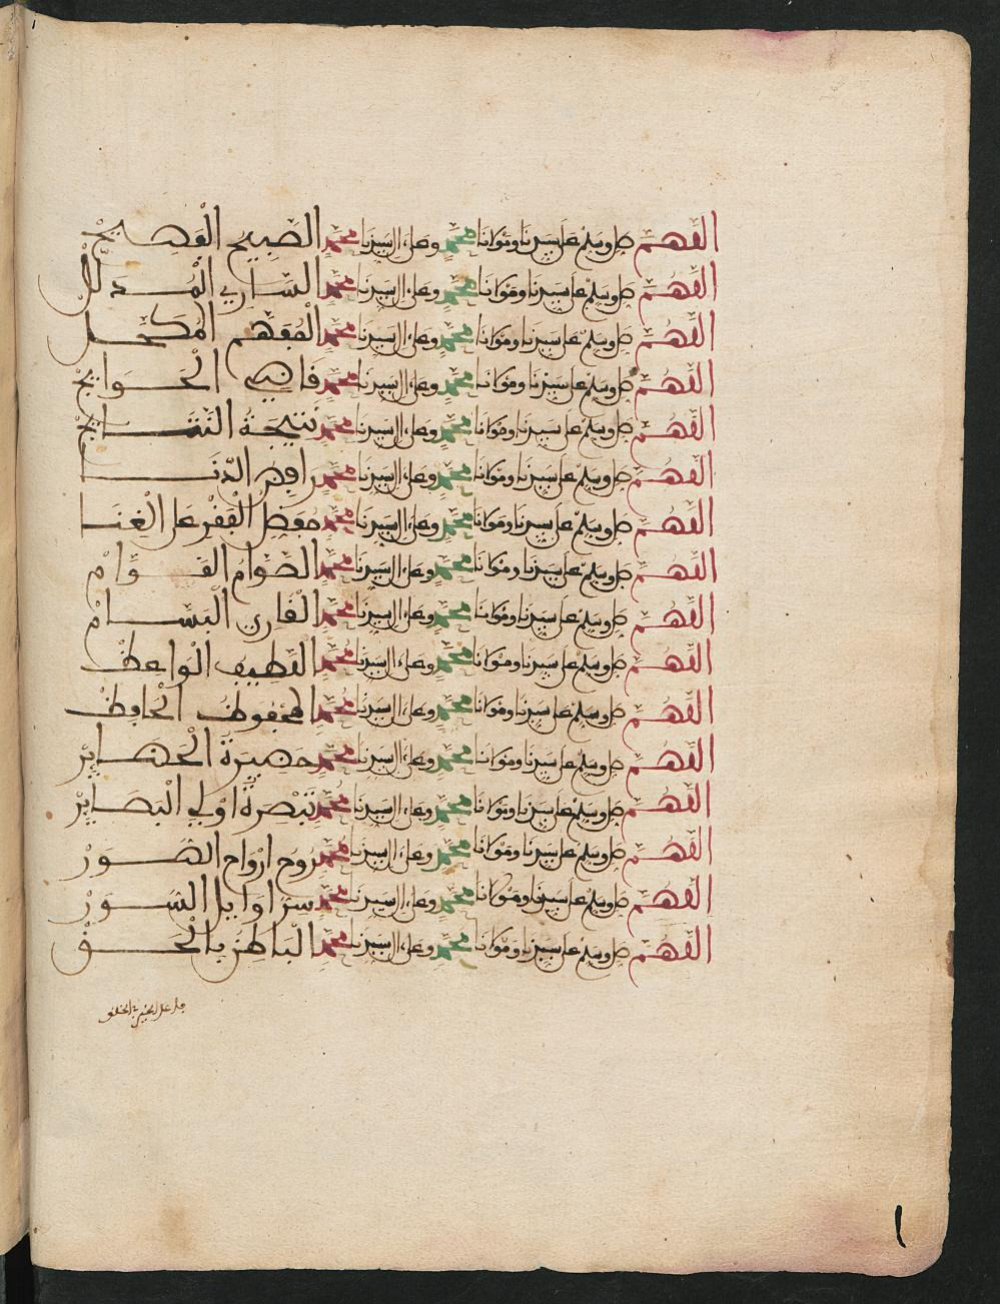 اللهم صل وسلم على سيدنا ومولانا محمد وعلى ءال سيدنا محمد الصبيح الفصيح
اللهم صل وسلم على سيدنا ومولانا محمد وعلى ءال سيدنا محمد الساري المدلل
اللهم صل وسلم على سيدنا ومولانا محمد وعلى ءال سيدنا محمد المفهم المكمل
اللهم صل وسلم على سيدنا ومولانا محمد وعلى ءال سيدنا محمد قاضي الحوايج
اللهم صل وسلم على سيدنا ومولانا محمد وعلى ءال سيدنا محمد نتيجة النتايج
اللهم صل وسلم على سيدنا ومولانا محمد وعلى ءال سيدنا محمد رافض الدنيا
اللهم صل وسلم على سيدنا ومولانا محمد وعلى ءال سيدنا محمد مفضل الفقر على الغنا
اللهم صل وسلم على سيدنا ومولانا محمد وعلى ءال سيدنا محمد الصوام القوام
اللهم صل وسلم على سيدنا ومولانا محمد وعلى ءال سيدنا محمد القارئ البسام
اللهم صل وسلم على سيدنا ومولانا محمد وعلى ءال سيدنا محمد اللطيف الواعظ
اللهم صل وسلم على سيدنا ومولانا محمد وعلى ءال سيدنا محمد المحفوظ الحافظ
اللهم صل وسلم على سيدنا ومولانا محمد وعلى ءال سيدنا محمد حضيرة الحضاير
اللهم صل وسلم على سيدنا ومولانا محمد وعلى ءال سيدنا محمد تبصرة اولي البصاير
اللهم صل وسلم على سيدنا ومولانا محمد وعلى ءال سيدنا محمد روح ارواح الصور
اللهم صل وسلم على سيدنا ومولانا محمد وعلى ءال سيدنا محمد سر اوايل السور
اللهم صل وسلم على سيدنا ومولانا محمد وعلى ءال سيدنا محمد الباطن بالحق